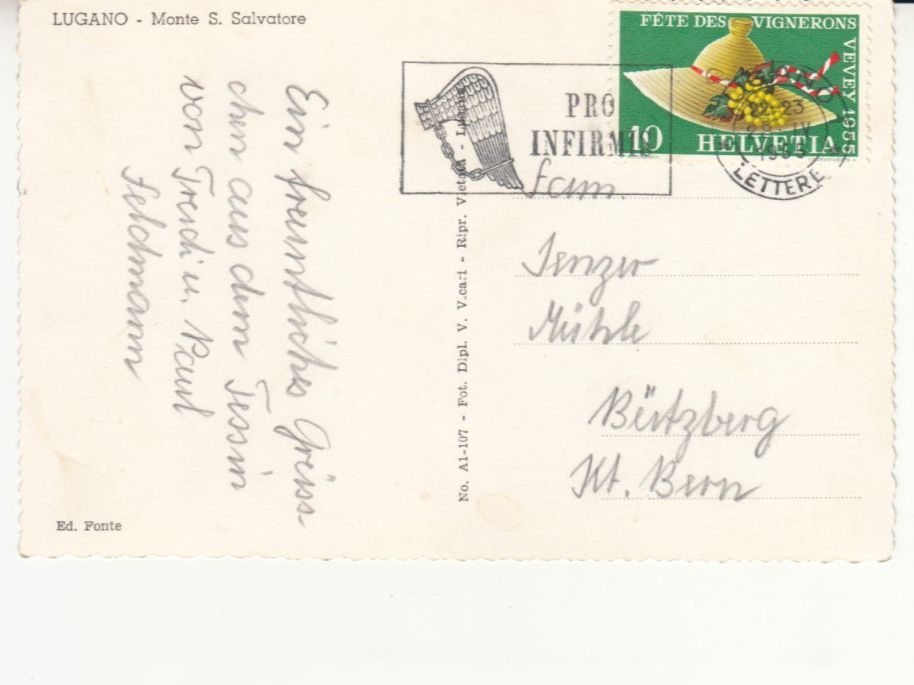 LUGANO - Monte S. Salvatore
Ein freundliches Grüss-
chen aus dem Tessin
von Trudi u. Paul
Feldmann
Ed. Fonte
No. A1-107 - Fot. Dipl. V. Vicari - Ripr. Vietata - Lugano
PRO
INFIRMIS
FÊTE DES VIGNERONS
VEVEY 1955
10 HELVETIA
22-23
28. IV
1955
LETTERE
Fam.
Jenzer
Mühle
Bützberg
Kt. Bern